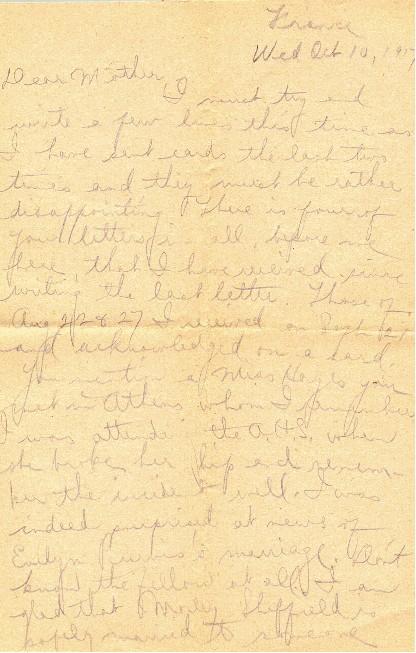 France
Wed Oct 10, 1917
Dear Mother,
I must try and
write a few lines this time as
I have sent cards the last two
times and they must be rather
disappointing. There is four of
your letters in all, before me
here, that I have received since
writing the last letter. Those of
Aug 22 & 27 I received on Sept
and acknowledged on a card.
You mention a Miss Hayes you
met in Athens whom I remember
I was attending the A.H.S. when
she broke her hip and remem-
ber the incident well. I was
indeed surprised at news of
Evelyn marriage. Don't
know the fellow at all. I am
glad that Morley Sheffield is
safely married to someone